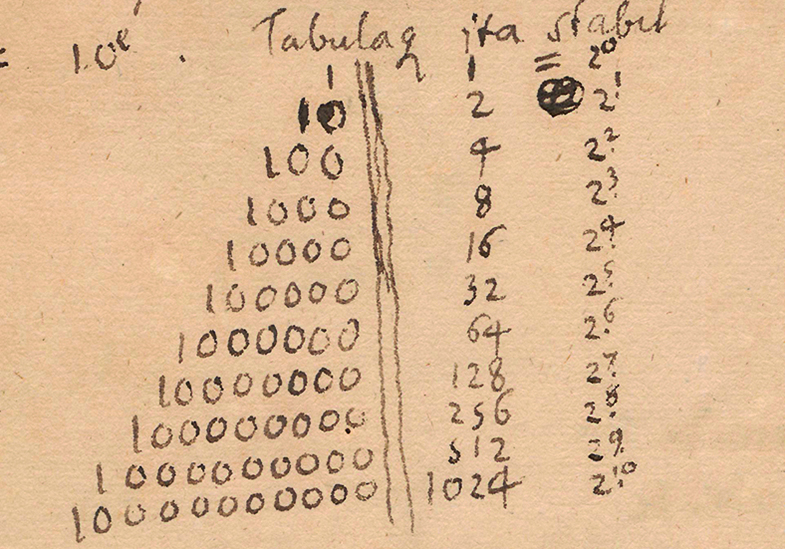 10ᵉ . Tabulaq ita stabit
1 1 = 2⁰
10 2 2.¹
100 4 2.²
1000 8 2.³
10000 16 2.⁴
100000 32 2.⁵
1000000 64 2.⁶
10000000 128 2.⁷
100000000 256 2.⁸
1000000000 512 2.⁹
10000000000 1024 2.¹⁰